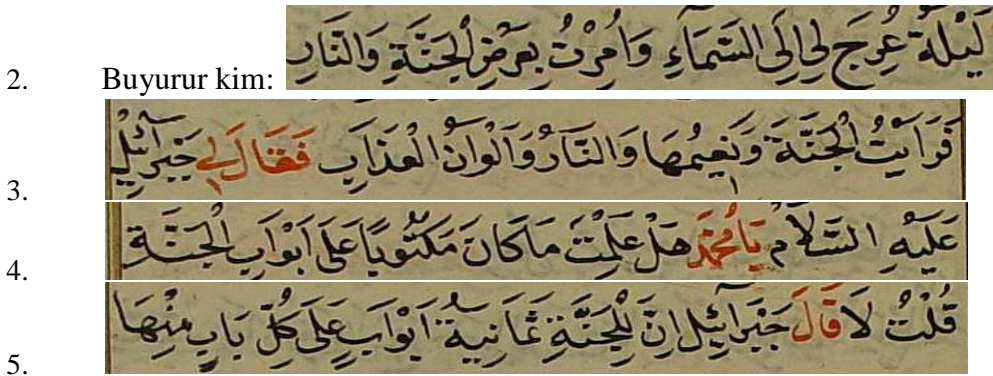 2. Buyurur kim: لَيْلَةَ عُرِجَ لِي اِلَى السَّمَآءِ وَاُمِرْتُ بِعَرْضِ الْجَنَّةِ وَالنَّارِ
3. فَرَاَيْتُ الْجَنَّةَ وَنَعِيمُهَا وَالنَّارُ وَاَلْوَانُ الْعَذَابِ فَقَالَ لِي جَبْرَآئِلُ
4. عَلَيْهِ السَّلَامُ يَا مُحَمَّدُ هَلْ عَلِمْتَ مَا كَانَ مَكْتُوبًا عَلَى اَبْوَابِ الْجَنَّةِ
5. قُلْتُ لَا قَالَ جَبْرَآئِلُ اِنَّ لِلْجَنَّةِ ثَمَانِيَةُ اَبْوَابٍ عَلَى كُلِّ بَابٍ مِنْهَا